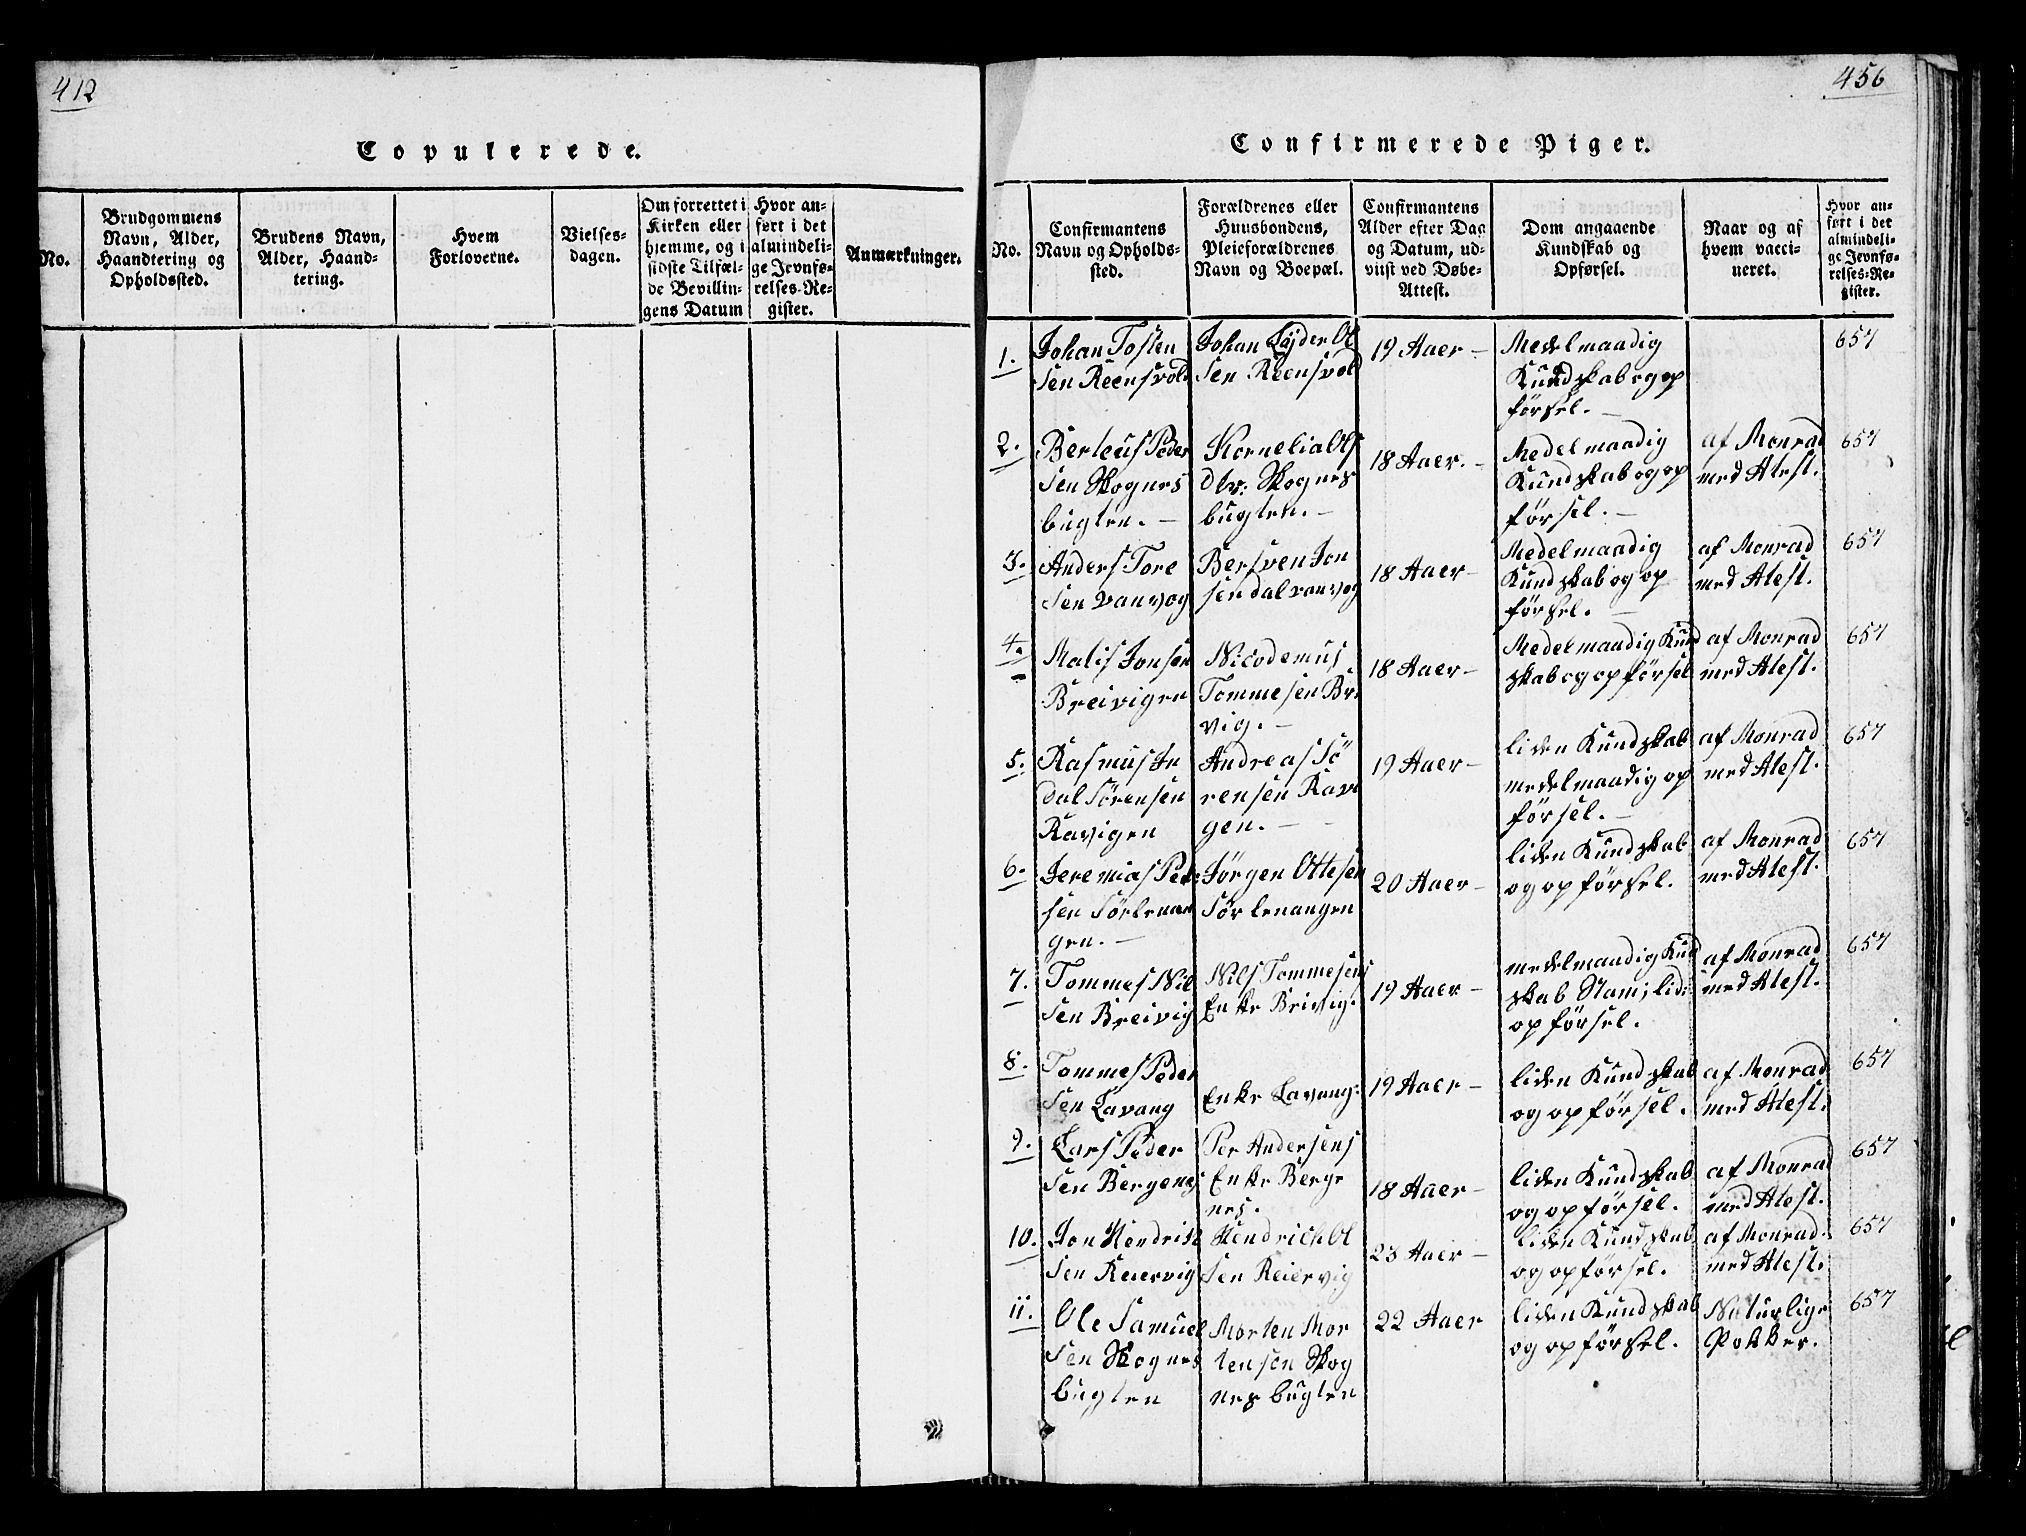 412
Copulerede.
No.
Brudgommens
Navn, Alder,
Haandtering og
Opholdssted.
Brudens Navn,
Alder, Haand-
tering.
Hvem
Forloverne.
Vielses-
dagen.
Om forrettet i
Kirken eller
hjemme, og i
sidste Tilfæl-
de Bevillin-
gens Datum
Hvor an-
ført i det
almindeli-
ge Jevnfø-
relses-Re-
gister.
Anmærkninger.
456
Confirmerede Piger.
No.
Confirmantens
Navn og Opholds-
sted.
Forældrenes eller
Huusbondens,
Pleieforældrenes
Navn og Boepæl.
Confirmantens
Alder efter Dag
og Datum, ud-
viist ved Døbe-
Attest.
Dom angaaende
Kundskab og
Opførsel.
Naar og af
hvem vacci-
neret.
Hvor an-
ført i det
almindeli-
ge Jevnfø-
relses-Re-
gister.
1.
Johan Tosten
sen Reensvold
Johan Lyder Ol
sen Reensvold
19 Aaer -
Medelmaadig
Kundskab og op
førsel. -
657
2.
Berteus Peder
sen Skognes
bugten. -
Kornelia Ols
Dtr: Skognes
bugten. -
18 Aaer. -
Medelmaadig
Kundskab og op
førsel. -
af Monrad
med Atest.
657
3.
Anders Tore
sen Vanvog
Bersven Jon
sen dal vanvog
18 Aaer -
Medelmaadig
Kundskab og op
førsel. -
af Monrad
med Atest.
657
4.
Matis Jonsen
Breivigen
Nicodemus
Tommesen Br
vig. -
18 Aaer -
Medelmaadig Kund
skab og opførsel
af Monrad
med Atest.
657
5.
Rasmus In
dal Sörensen
Ravigen
Andreas Sö
rensen Ravi
gen. -
19 Aaer -
liden Kundskab
medelmaadig op
førsel. -
af Monrad
med Atest.
657
6.
Jeremias Pede
sen Sörlenan
gen. -
Jörgen Ottesen
Sörlenangen
20 Aaer -
liden Kundskab
og opførsel.
af Monrad
med Atest.
657
7.
Tommes Nil
sen Breivig
Nils Tommesens
Enke Brivig.
19 Aaer -
medelmaadig Kund
skab lid:
opførsel.
af Monrad
med Atest.
657
8.
Tommes Peder
sen Lavang
Enke Lavang:
19 Aaer -
liden Kundskab
og opførsel.
af Monrad
med Atest.
657
9.
Lars Peder
sen Bergenes
Per Andersens
Enke Berge
nes.
18 Aaer -
liden Kundskab
og opførsel.
af Monrad
med Atest.
657
10.
Jon Hendrik
sen Reiervig
Hendrich Ol
sen Reiervig
23 Aaer -
liden Kundskab
og opførsel.
af Monrad
med Atest.
657
11.
Ole Samuel
sen Skognes
bugten
Morten Mor
tensen Skog
nes bugten
22 Aaer
liden Kundskab
og opførsel.
Naturlige
Pokker.
657